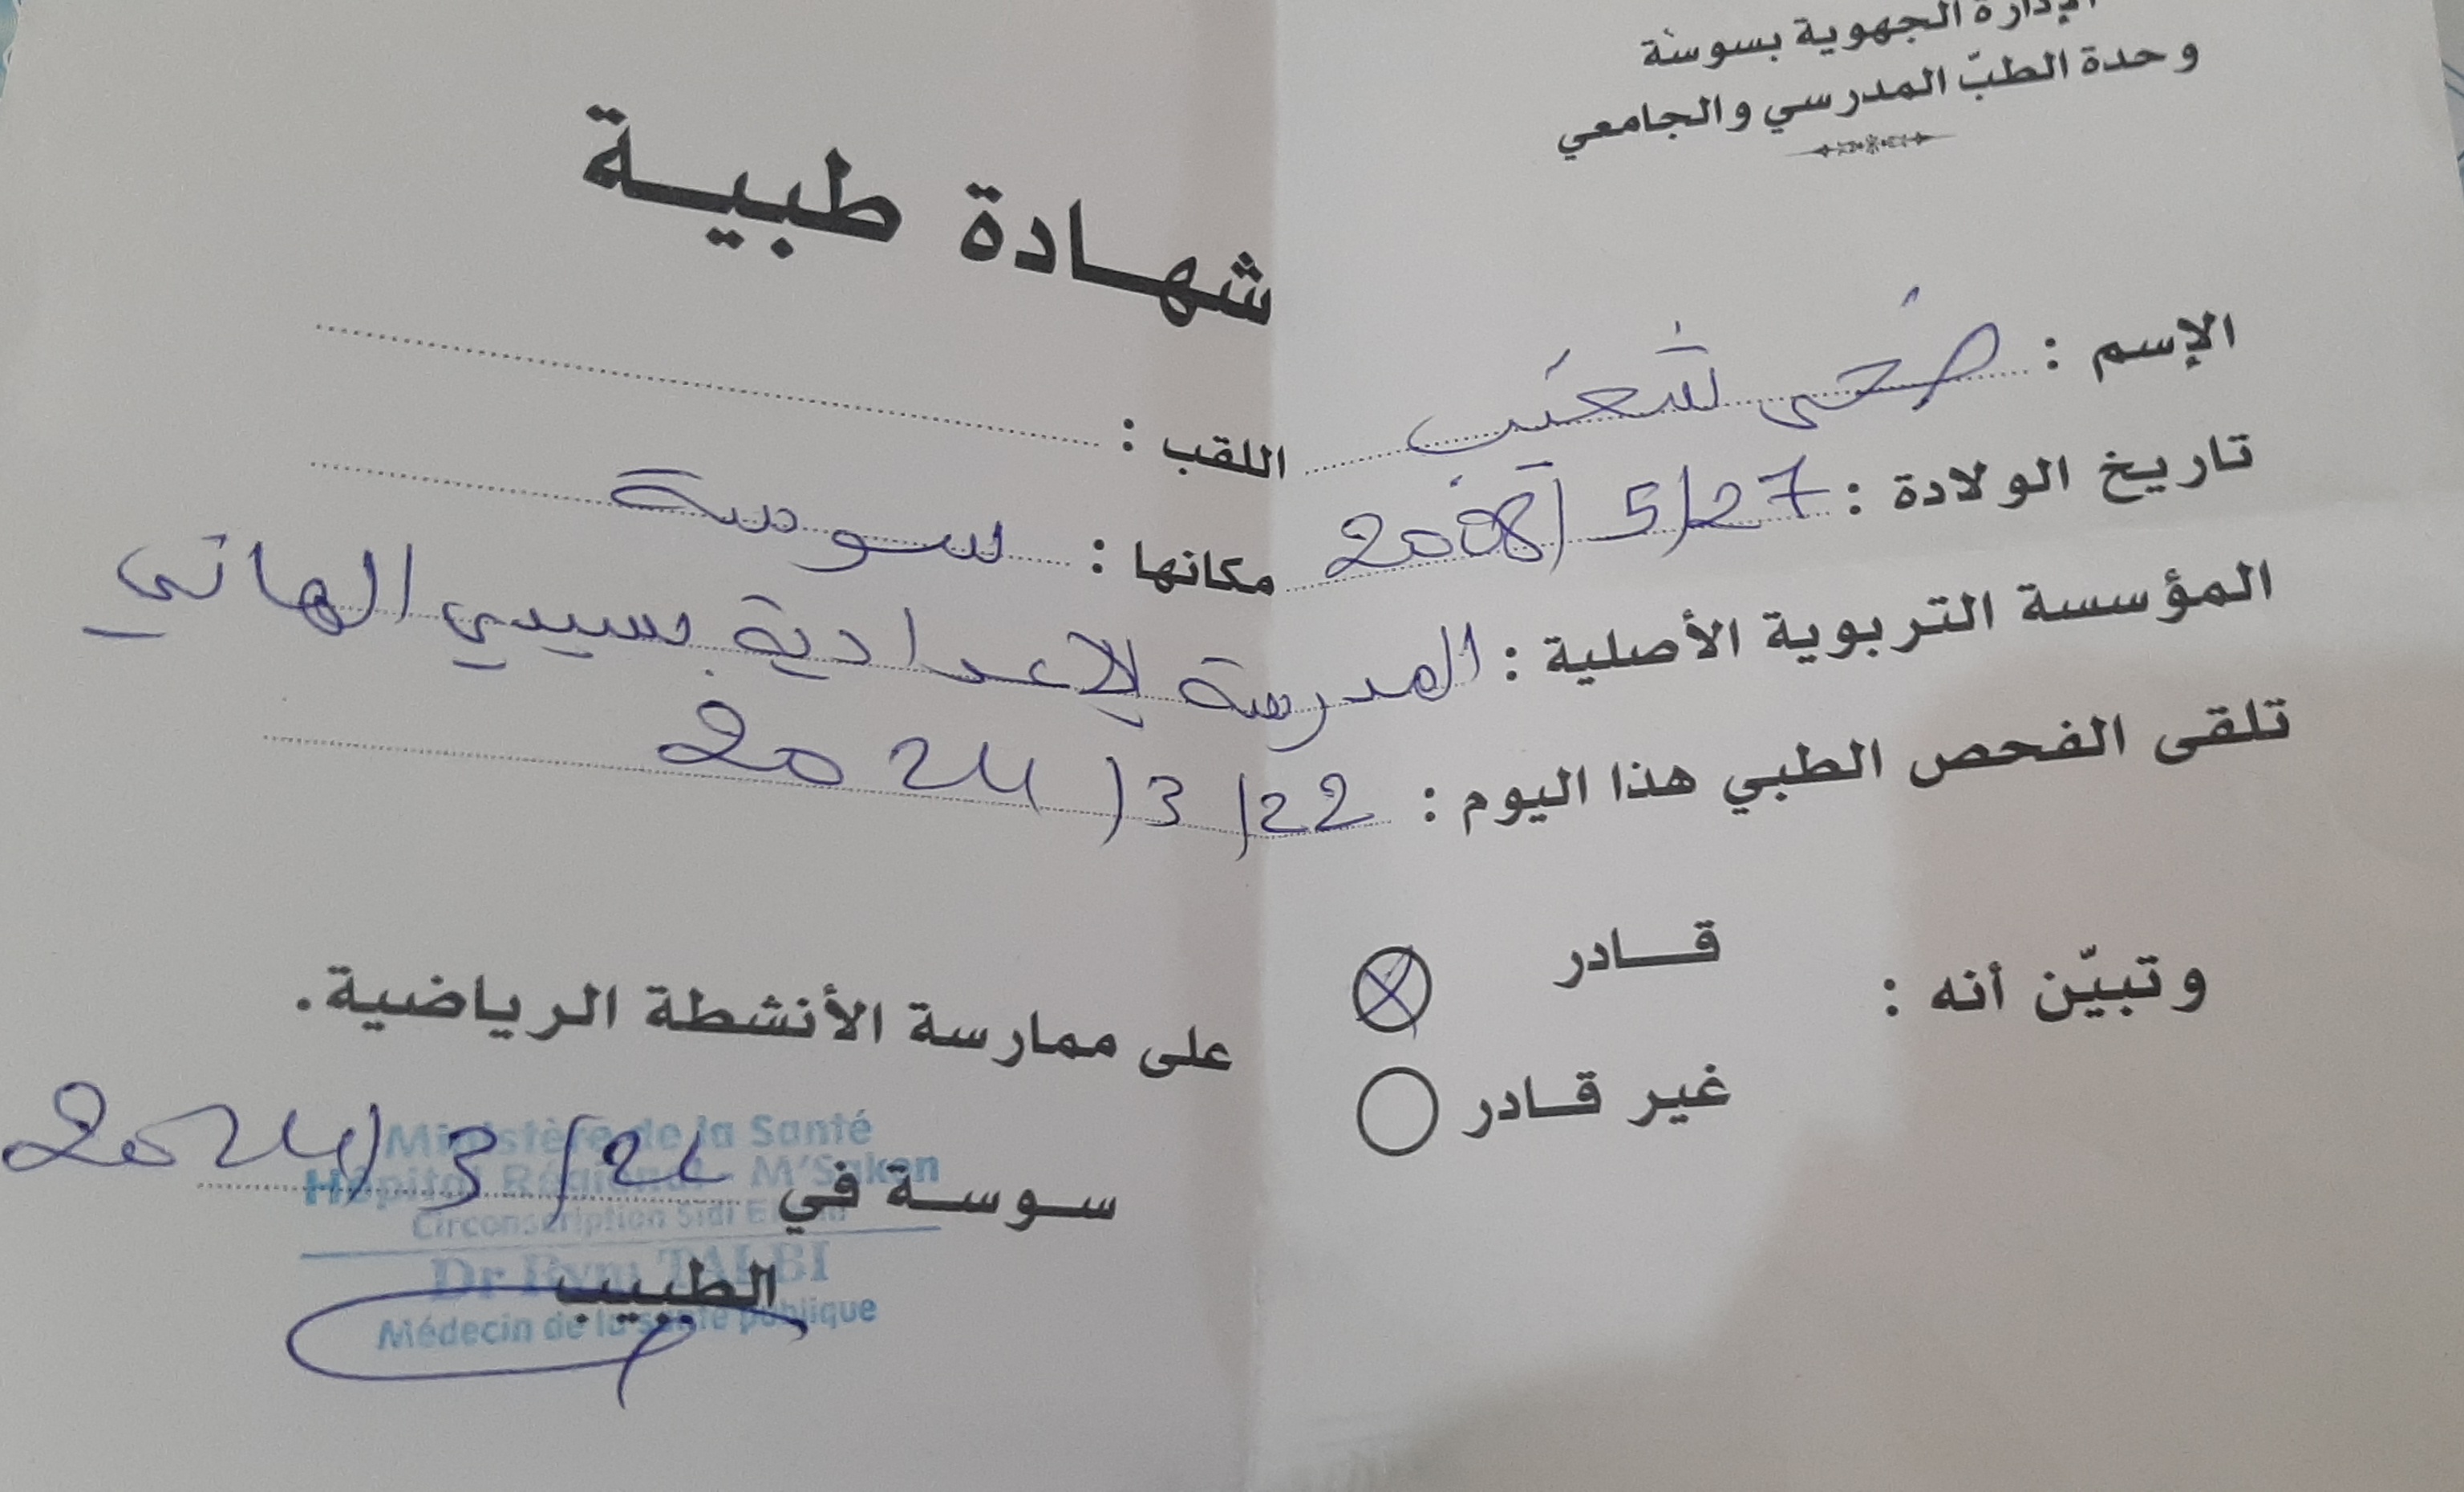 الإدارة الجهوية بسوسة
وحدة الطبّ المدرسي والجامعي
شهادة طبية
الإسم : ضحى شعيب اللقب :
تاريخ الولادة : 27/5/2008 مكانها : سوسة
المؤسسة التربوية الأصلية : المدرسة الإعدادية بسيدي الهاني
تلقى الفحص الطبي هذا اليوم : 22/3/2024
وتبيّن أنه : قادر
غير قادر
على ممارسة الأنشطة الرياضية.
سوسة في 22/3/2024
الطبيب
Ministère de la Santé
Hôpital Régional - M'Saken
Circonscription Sidi
Dr Rym TALBI
Médecin de la santé publique